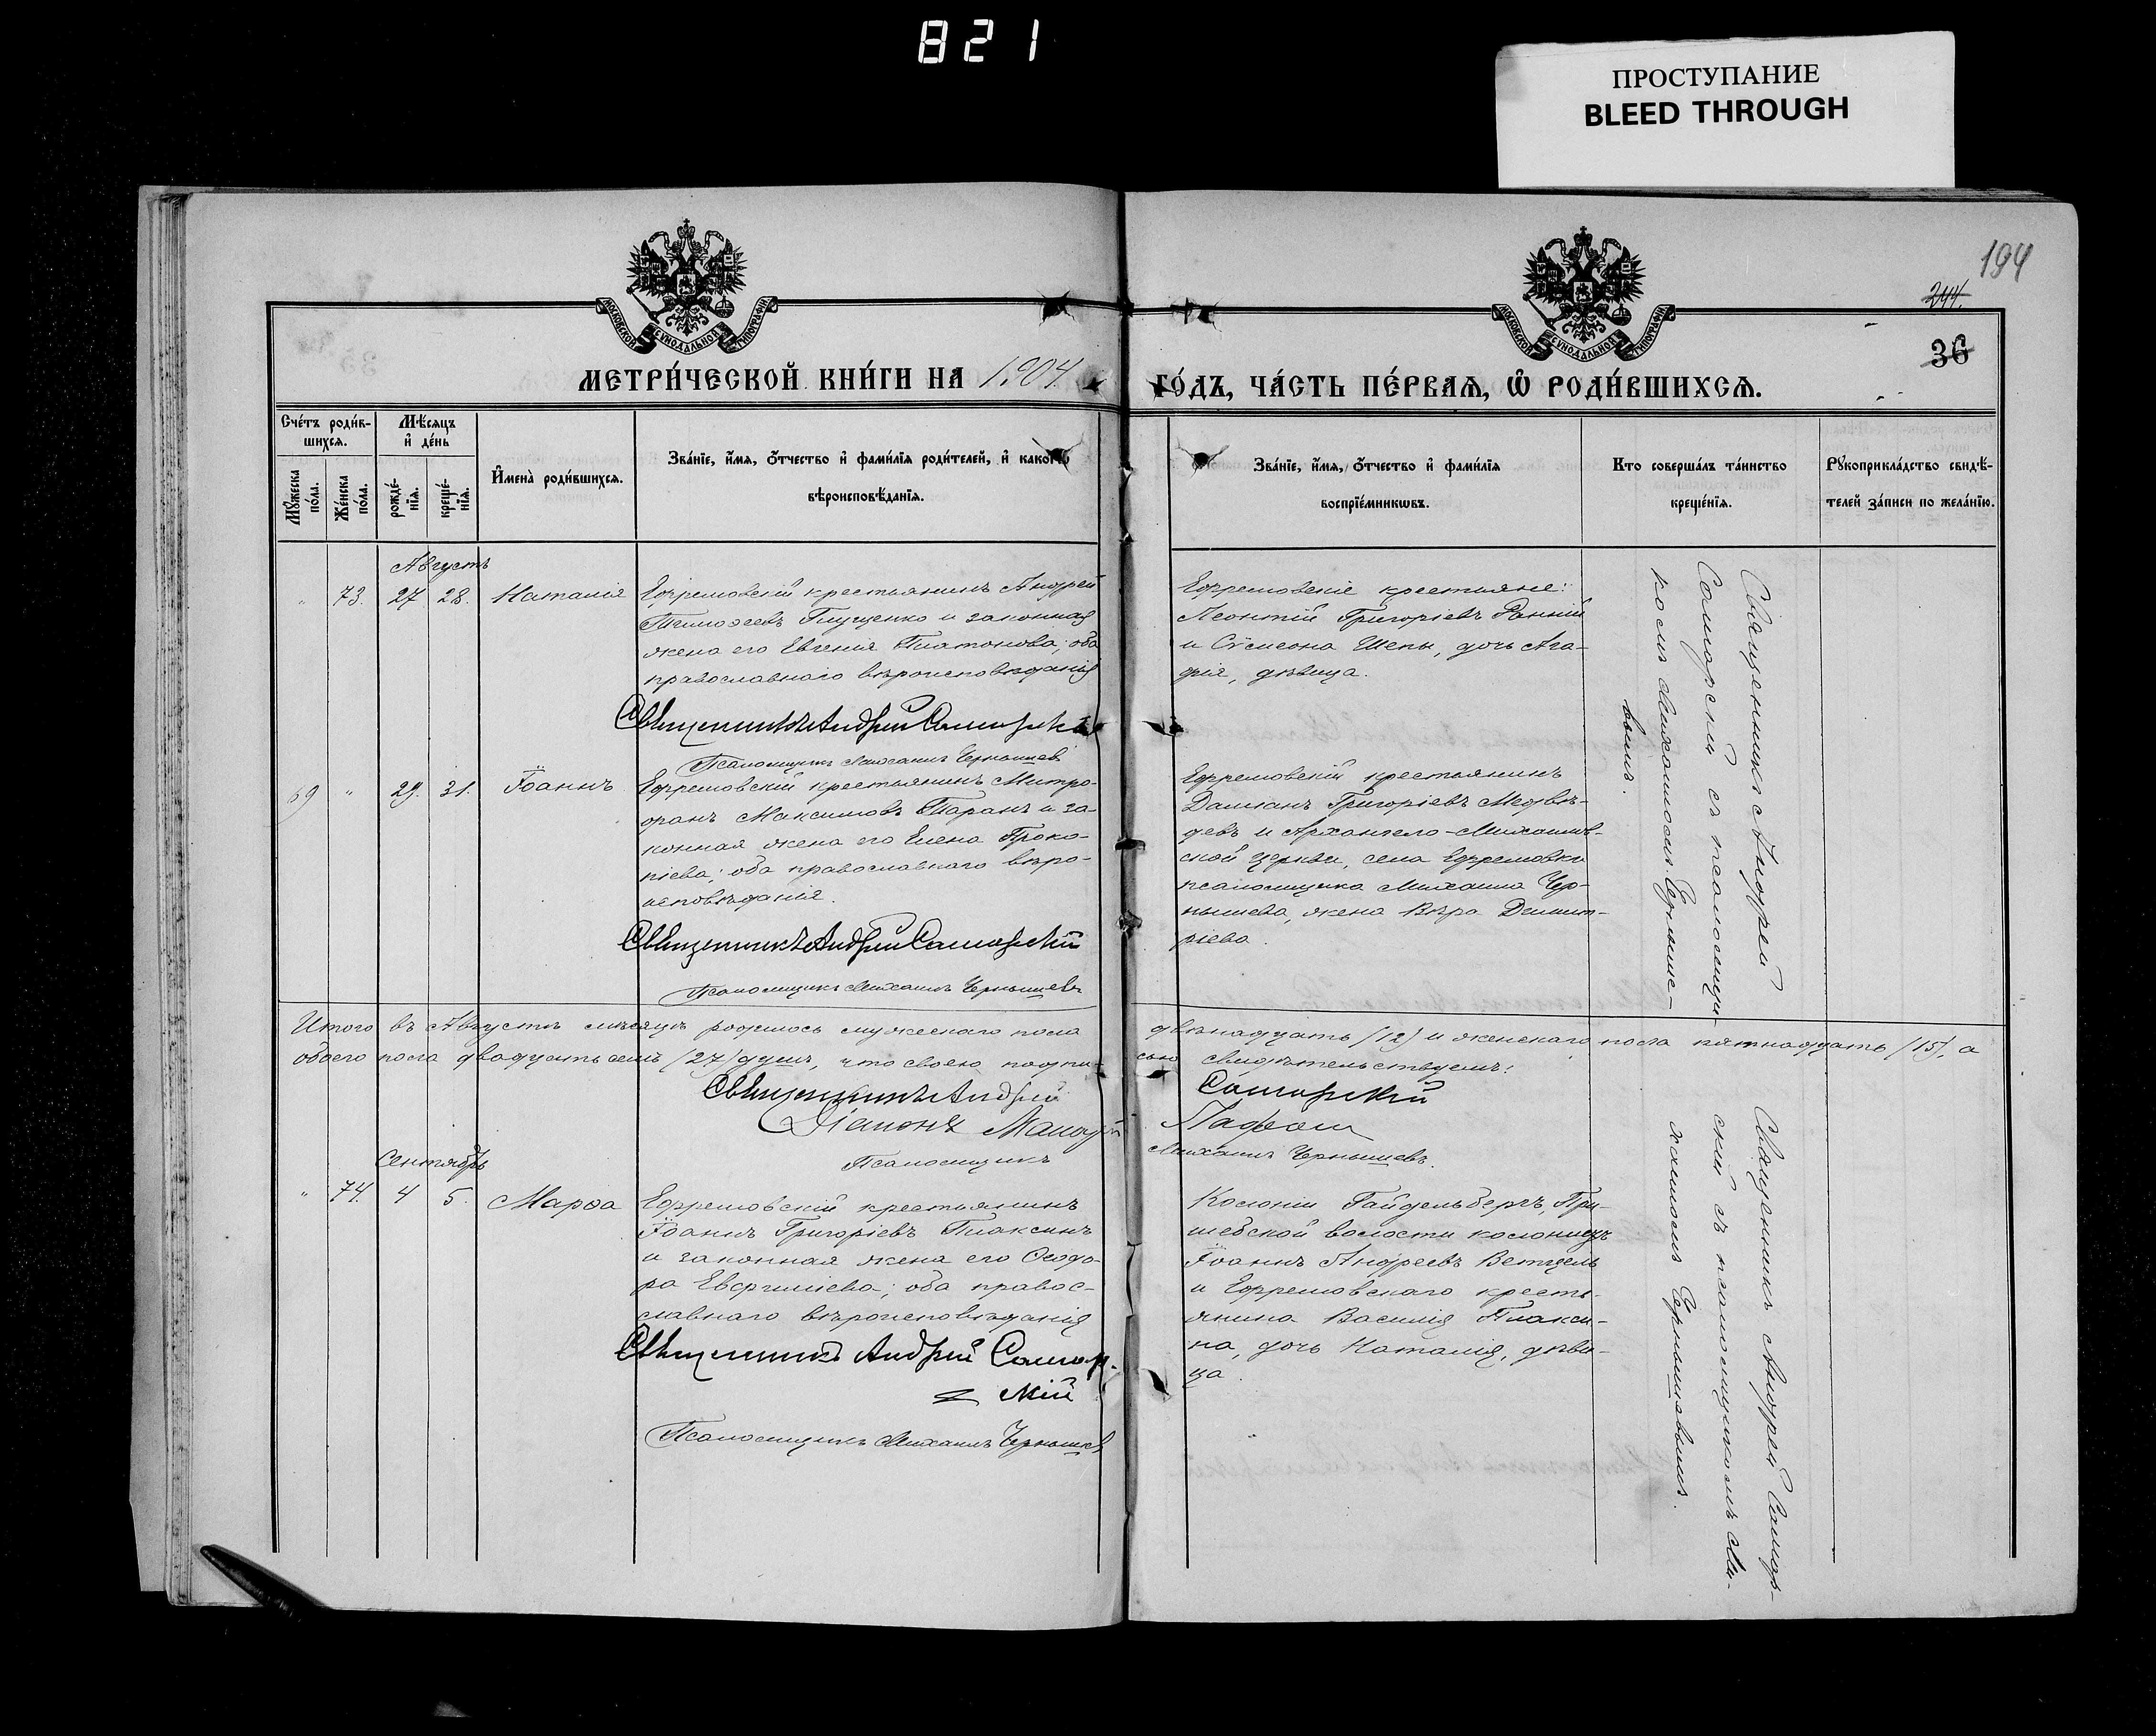 821
ПРОСТУПАНИЕ
BLEED THROUGH
194
244.
36
МОСКОВСКОЙ СѴНОДАЛЬНОЙ ТИПОГРАФІИ
МОСКОВСКОЙ СѴНОДАЛЬНОЙ ТИПОГРАФІИ
МЕТРИ́ЧЕСКОЙ КНИ́ГИ НА 1904
ГО́ДЪ, ЧА́СТЬ ПЕ́РВАѦ, Ѡ҆ РОДИ́ВШИХСѦ.
Сче́тъ роди́в-
шихсѧ.
Мꙋ́жеска по́ла.
Же́нска по́ла.
Мѣ́сяцъ
и҆ де́нь
рожде́-
нїѧ.
креще́-
нїѧ.
И҆мена̀ роди́вшихсѧ.
Зва́нїе, и҆́мѧ, ѻ҆́тчество и҆ фами́лїѧ роди́телей, и҆ како́гѡ
вѣроисповѣ́данїѧ.
Зва́нїе, и҆́мѧ, ѻ҆́тчество и҆ фами́лїѧ
воспрїе́мникѡвъ.
Кто соверша́лъ та́инство
креще́нїѧ.
Рꙋкоприкла́дство свидѣ́-
телей за́писи по жела́нїю.
Августъ
" 73. 27. 28. Наталія
Ефремовскій крестьянинъ Андрей
Тимоѳеевъ Глущенко и законная
жена его Евгенія Платонова; оба
православнаго вѣроисповѣданія
Священникъ Андрей Саморскій
Псаломщикъ Михаилъ Чернышев
Ефремовскіе крестьяне:
Леонтій Григоріевъ Ранній
и Сѵмеона Шепы, дочь Ага-
фія, дѣвица.
69 " 29. 31. Іоаннъ
Ефремовскій крестьянинъ Митро-
фанъ Максимовъ Таранъ и за-
конная жена его Елена Проко-
піева; оба православнаго вѣро-
исповѣданія.
Священникъ Андрей Саморскій
Псаломщикъ Михаилъ Чернышевъ
Ефремовскій крестьянинъ
Даміанъ Григоріевъ Медвѣ-
девъ и Архангело-Михайлов-
ской церкви, села Ефремовки
псаломщика Михаила Чер-
нышева, жена Вѣра Димит-
ріева.
Священникъ Андрей
Саморскій съ псаломщи-
комъ Михаиломъ Черныше-
вымъ.
Итого въ Августѣ мѣсяцѣ родилось мужескаго пола двѣнадцать /12/ и женскаго пола пятнадцать /15/, а
обоего пола двадцать семь /27/ душъ, что своею подпи-
сью свидѣтельствуемъ:
Священникъ Андрей Саморскій
Діаконъ
Псаломщикъ Михаилъ Чернышевъ.
Сентябрь
" 74. 4 5. Марѳа
Ефремовскій крестьянинъ
Іоаннъ Григоріевъ Плаксинъ
и законная жена его Ѳеодо-
ра Евфиміева; оба правос-
лавнаго вѣроисповѣданія
Священникъ Андрей Самор-
скій
Псаломщикъ Михаилъ Чернышев
Колоніи Гайдельбергъ, При-
шибской волости колонистъ
Іоаннъ Андреевъ Ветцель
и Ефремовскаго кресть-
янина Василія Плакси-
на, дочь Наталія, дѣви-
ца.
Священникъ Андрей Самор-
скій съ псаломщикомъ Ми-
хаиломъ Чернышевымъ.